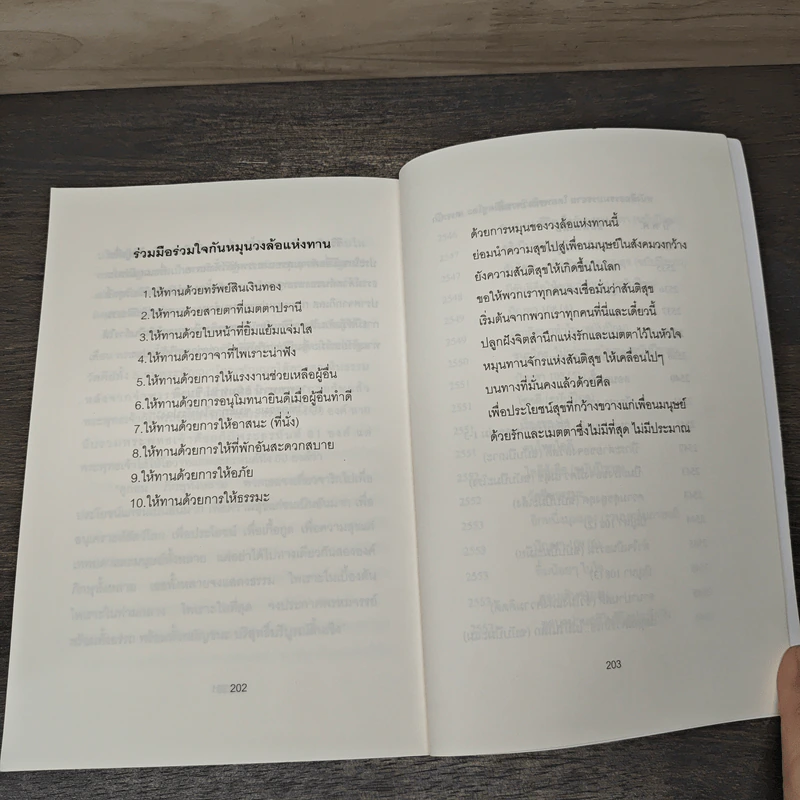 ร่วมมือร่วมใจกันหมุนวงล้อแห่งทาน
1.ให้ทานด้วยทรัพย์สินเงินทอง
2.ให้ทานด้วยสายตาที่เมตตาปรานี
3.ให้ทานด้วยใบหน้าที่ยิ้มแย้มแจ่มใส
4.ให้ทานด้วยวาจาที่ไพเราะน่าฟัง
5.ให้ทานด้วยการให้แรงงานช่วยเหลือผู้อื่น
6.ให้ทานด้วยการอนุโมทนายินดีเมื่อผู้อื่นทำดี
7.ให้ทานด้วยการให้อาสนะ (ที่นั่ง)
8.ให้ทานด้วยการให้ที่พักอันสะดวกสบาย
9.ให้ทานด้วยการให้อภัย
10.ให้ทานด้วยการให้ธรรมะ
202
ด้วยการหมุนของวงล้อแห่งทานนี้
ย่อมนำความสุขไปสู่เพื่อนมนุษย์ในสังคมวงกว้าง
ยังความสันติสุขให้เกิดขึ้นในโลก
ขอให้พวกเราทุกคนจงเชื่อมั่นว่าสันติสุข
เริ่มต้นจากพวกเราทุกคนที่นี่และเดี๋ยวนี้
ปลูกฝังจิตสำนึกแห่งรักและเมตตาไว้ในหัวใจ
หมุนทานจักรแห่งสันติสุข ให้เคลื่อนไปๆ
บนทางที่มั่นคงแล้วด้วยศีล
เพื่อประโยชน์สุขที่กว้างขวางแก่เพื่อนมนุษย์
ด้วยรักและเมตตาซึ่งไม่มีที่สุด ไม่มีประมาณ
203